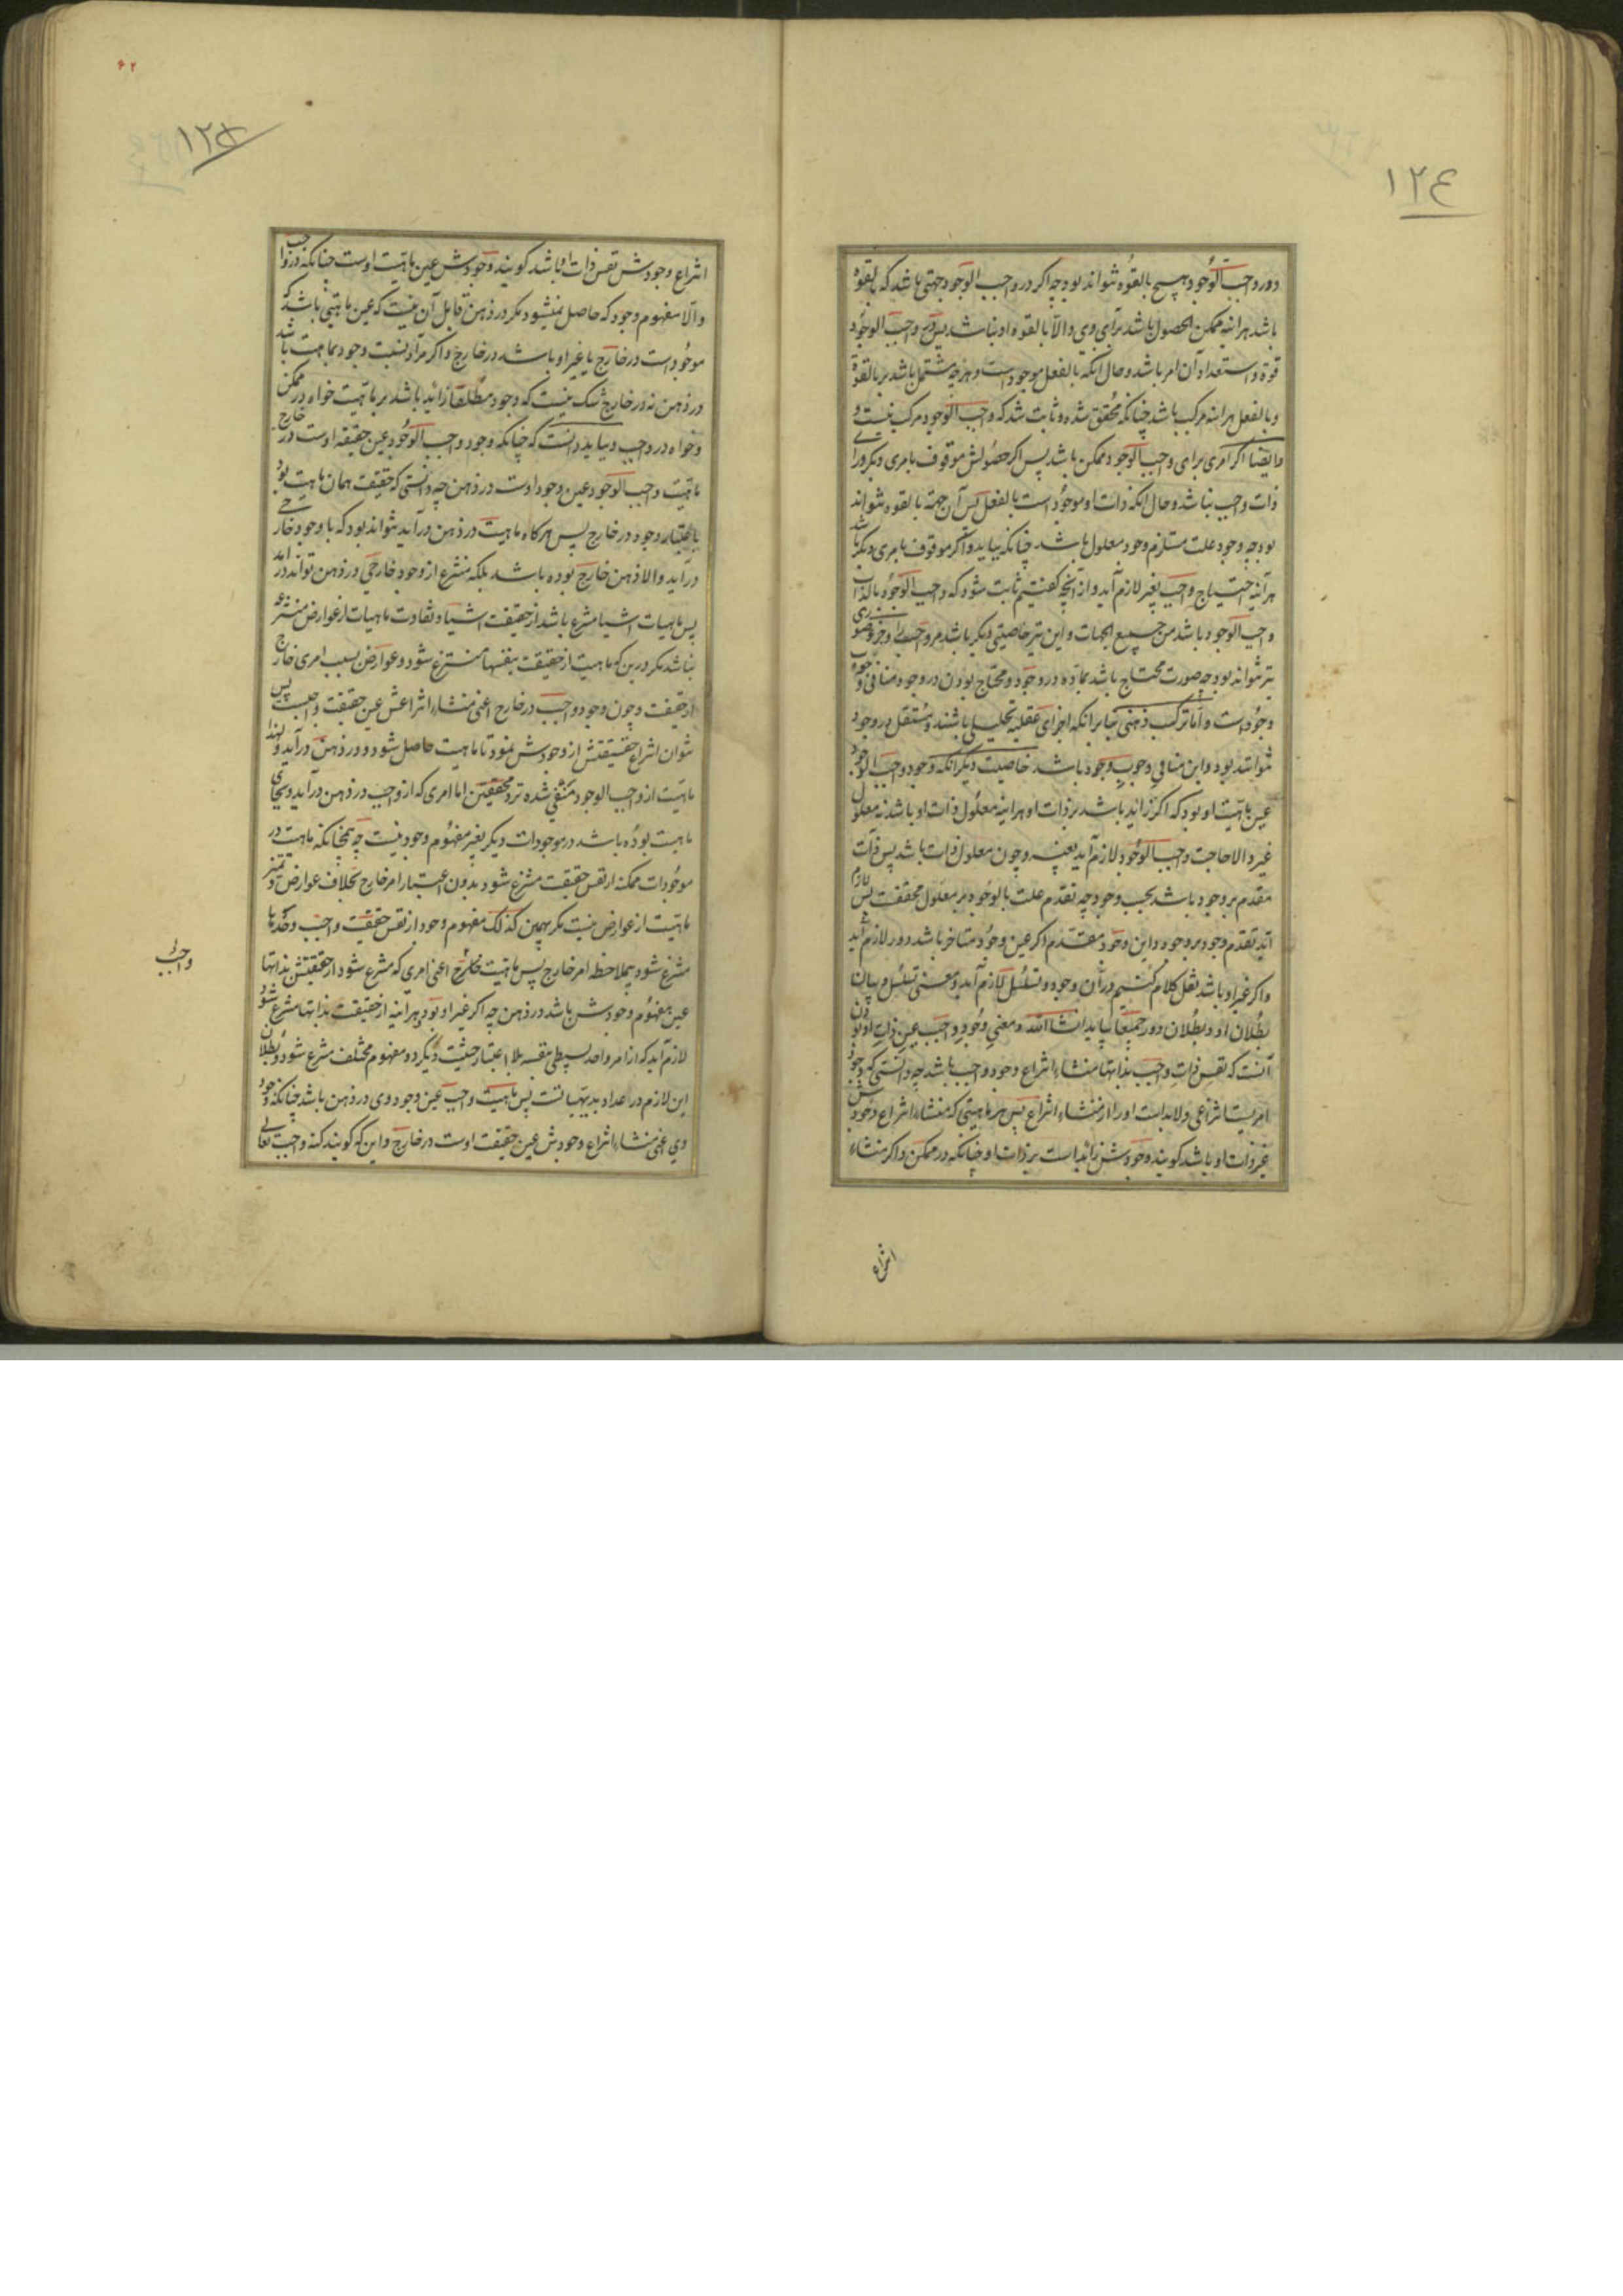 ١٢٤
و در واجب الوجود هیچ بالقوه نتواند بود چه اگر در واجب الوجود جهتی باشد که بالقوه
باشد هر اینه ممکن الحصول باشد برای وی و الا بالقوه او نباشد پس در واجب الوجود
قوه و استعداد آن امر باشد و حال آنکه بالفعل موجود است و هر چه مشتمل باشد بر بالقوة
و بالفعل هر اینه مرکب باشد چنانکه محقق شده و ثابت شد که واجب الوجود مرکب نیست و
ایضا اگر امری برای واجب الوجود ممکن باشد پس اگر حصولش موقوف بامری دیگر ورای
ذات واجب نباشد و حال آنکه ذات او موجود است بالفعل پس آن جهة بالقوه نتواند
بود چه وجود علت مستلزم وجود معلول باشد چنانکه بیاید و اگر موقوف بامری دیگر باشد
هر آینه احتیاج واجب بغیر لازم آید و از آنچه گفتیم ثابت شود که واجب الوجود بالذات
واجب الوجود باشد من جمیع الجهات و این نیز خاصیتی دیگر باشد مر واجب را و جزو صوری
نیز نتواند بود چه صورت محتاج باشد بماده در وجود و محتاج بودن در وجود منافی وجوب
وجود است و اما ترکیب ذهنی بنا بر آنکه اجزای عقلیه تحلیلی باشند و مستقل در وجود
نتوانند بود و این منافی وجوب وجود باشد خاصیت دیگر آنکه وجود واجب الوجود
عین ماهیت او بود که اگر زائد باشد بر ذات او هر اینه معلول ذات او باشد نه معلول
غیر و الا حاجت واجب الوجود لازم آید بغیر و چون معلول ذات باشد پس ذات
مقدم بر وجود باشد بحسب وجود چه تقدم علت بالوجود بر معلول محققست پس لازم
آید تقدم وجود بر وجود و این وجود مقدم اگر عین وجود متاخر باشد دور لازم آید
و اگر غیر او باشد نقل کلام کنیم در آن وجود و تسلسل لازم آید و معنی تسلسل و بیان
بطلان او و بطلان دور جمیعا بیاید انشاالله و معنی وجود واجب عین ذات او بودن
آنست که نفس ذات واجب بذاتها منشاء انتزاع وجود واجب باشد چه دانستی که وجود
امریست انتزاعی و لابدا ست او را از منشاء انتزاع پس هر ماهیتی که منشاء انتزاع وجودش
غیر ذات او باشد گویند وجودش زائد است بر ذات او چنانکه در ممکن و اگر منشاء
انتزاع
٦٢
١٢٥
انتزاع وجودش نفس ذات او باشد گویند وجودش عین ماهیت اوست چنانکه در واجب
و الا مفهوم وجود که حاصل نمیشود مگر در ذهن قابل آن نیست که عین ماهیتی باشد که
موجود است در خارج یا غیر او باشد در خارج و اگر مراد نسبت وجود بماهیت باشد
در ذهن نه در خارج شک نیست که وجود مطلقا زائد باشد بر ماهیت خواه در ممکن
و خواه در واجب و بباید دانست که چنانکه وجود واجب الوجود عین حقیقه اوست در خارج
ماهیت واجب الوجود عین وجود اوست در ذهن چه دانستی که حقیقت همان ماهیت بود
باعتبار وجود در خارج پس هر گاه ماهیت در ذهن در آید نتواند بود که با وجود خارجی
در آید و الا ذهن خارج بوده باشد بلکه منتزع از وجود خارجی در ذهن تواند در آمد
پس ماهیات اشیا منتزع باشد از حقیقت اشیا و تفاوت ماهیات از عوارض منتزعه
نباشد مگر درین که ماهیت از حقیقت بنفسها منتزع شود و عوارض بسبب امری خارج
از حقیقت و چون وجود واجب در خارج اعنی منشاء انتزاعش عین حقیقت واجبست پس
نتوان انتزاع حقیقتش از وجودش نمود تا ماهیت حاصل شود و در ذهن در آید و لهذا
ماهیت از واجب الوجود منفی شده نزد محققین اما امری که از واجب در ذهن در آید و بجای
ماهیت بوده باشد در موجودات دیگر بغیر مفهوم وجود نیست چه همچنانکه ماهیت در
موجودات ممکنه از نفس حقیقت منتزع شود بدون اعتبار امر خارج بخلاف عوارض و تمیز
ماهیت از عوارض نیست مگر بهمین کذلک مفهوم وجود از نفس حقیقت واجب وحدها
منتزع شود بملاحظه امر خارج پس ماهیت خارج اعنی امری که منتزع شود از حقیقتش بذاتها
عین مفهوم وجودش باشد در ذهن چه اگر غیر او بود هر اینه از حقیقت بذاتها منتزع شود
لازم آید که از امر واحد بسیطی بنفسه بلا اعتبار حیثیت دیگر دو مفهوم مختلف منتزع شود و بطلان
این لازم در اعداد بدیهیاتست پس ماهیت واجب عین وجود وی در ذهن باشد چنانکه وجود
وی اعنی منشاء انتزاع وجودش عین حقیقت اوست در خارج و این که گویند کنه واجب تعالی
واجبی